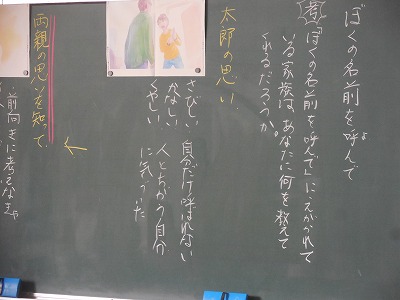 ぼくの名前を呼んで
「ぼくの名前を呼んで」にえがかれて
いる家族は、あなたに何を教えて
くれるだろうか。
太郎の思い
さびしい
かなしい
くやしい
自分だけ呼ばれない
人とちがう自分
に気づいた
両親の思いを知って
前向きに考えなきゃ